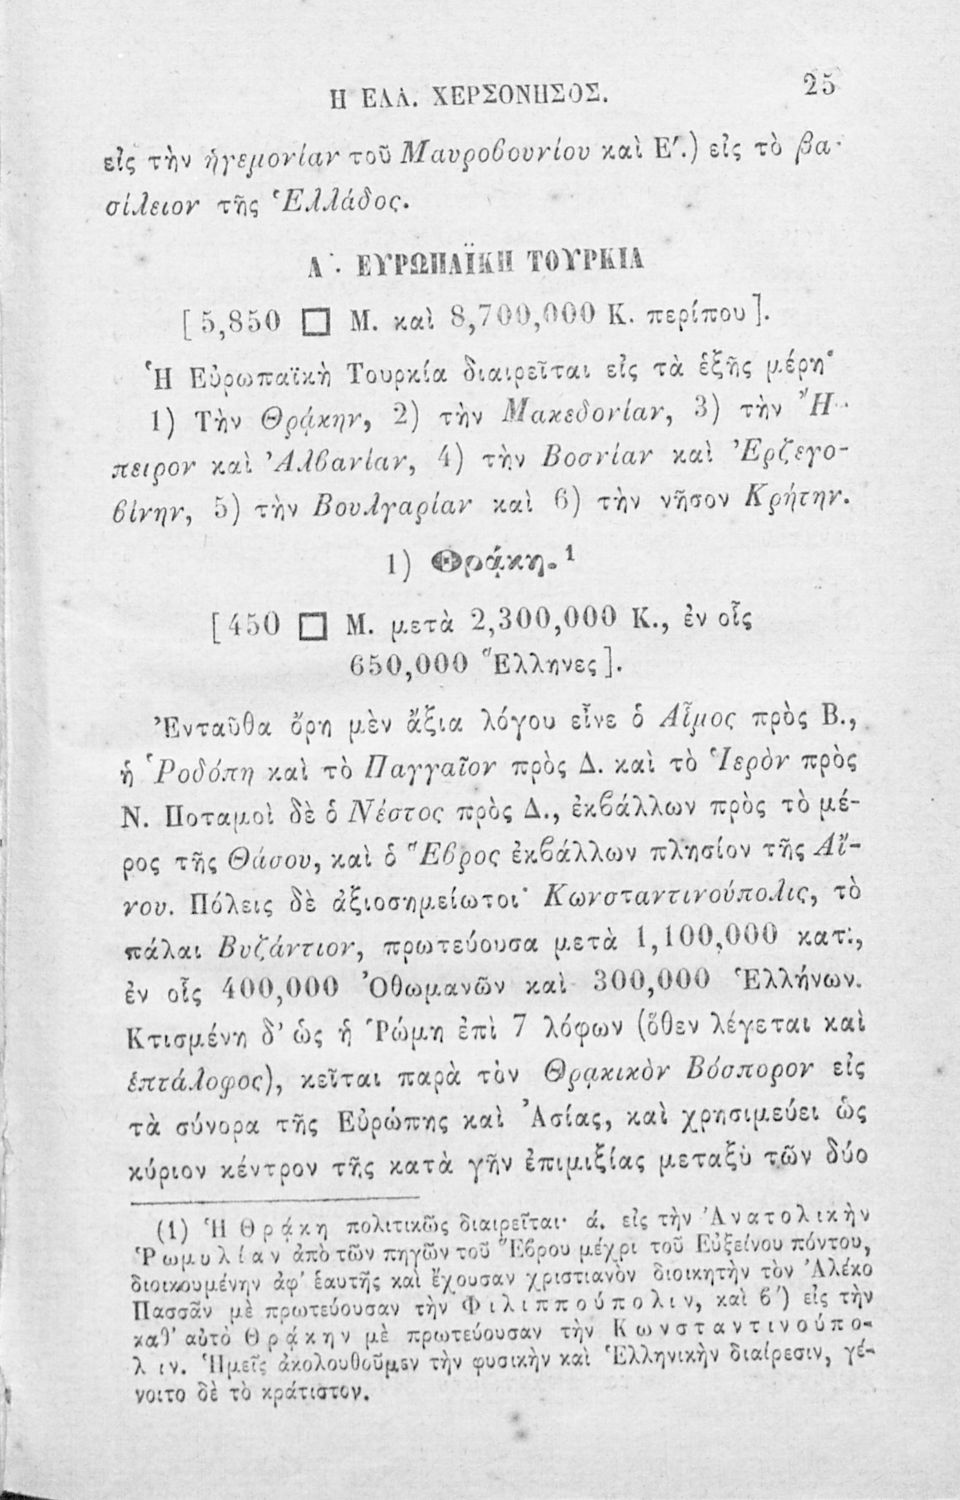 Η ΕΛΛ. ΧΕΡΣΟΝΗΣΟΣ. 25
εἰς τὴν ἡγεμονίαν τοῦ Μαυροβουνίου καὶ Ε΄.) εἰς τὸ βα-
σίλειον τῆς Ἑλλάδος.
Α΄. ΕΥΡΩΠΑΪΚΗ ΤΟΥΡΚΙΑ
[5,850 □ Μ. καὶ 8,700,000 Κ. περίπου].
Ἡ Εὐρωπαϊκὴ Τουρκία διαιρεῖται εἰς τὰ ἑξῆς μέρη·
1) Τὴν Θρᾴκην, 2) τὴν Μακεδονίαν, 3) τὴν Ἤ-
πειρον καὶ Ἀλβανίαν, 4) τὴν Βοσνίαν καὶ Ἐρζεγο-
βίνην, 5) τὴν Βουλγαρίαν καὶ 6) τὴν νῆσον Κρήτην.
1) Θρᾴκη.¹
[450 □ Μ. μετὰ 2,300,000 Κ., ἐν οἷς
650,000 Ἕλληνες].
Ἐνταῦθα ὄρη μὲν ἄξια λόγου εἶνε ὁ Αἷμος πρὸς Β.,
ἡ Ῥοδόπη καὶ τὸ Παγγαῖον πρὸς Δ. καὶ τὸ Ἱερὸν πρὸς
Ν. Ποταμοὶ δὲ ὁ Νέστος πρὸς Δ., ἐκβάλλων πρὸς τὸ μέ-
ρος τῆς Θάσου, καὶ ὁ Ἕβρος ἐκβάλλων πλησίον τῆς Αἴ-
νου. Πόλεις δὲ ἀξιοσημείωτοι· Κωνσταντινούπολις, τὸ
πάλαι Βυζάντιον, πρωτεύουσα μετὰ 1,100,000 κατ.,
ἐν οἷς 400,000 Ὀθωμανῶν καὶ 300,000 Ἑλλήνων.
Κτισμένη δ' ὡς ἡ Ῥώμη ἐπὶ 7 λόφων (ὅθεν λέγεται καὶ
ἑπτάλοφος), κεῖται παρὰ τὸν Θρᾳκικὸν Βόσπορον εἰς
τὰ σύνορα τῆς Εὐρώπης καὶ Ἀσίας, καὶ χρησιμεύει ὡς
κύριον κέντρον τῆς κατὰ γῆν ἐπιμιξίας μεταξὺ τῶν δύο
(1) Ἡ Θρᾴκη πολιτικῶς διαιρεῖται· ά. εἰς τὴν Ἀνατολικὴν
Ῥωμυλίαν ἀπὸ τῶν πηγῶν τοῦ Ἕβρου μέχρι τοῦ Εὐξείνου πόντου,
διοικουμένην ἀφ' ἑαυτῆς καὶ ἔχουσαν χριστιανὸν διοικητὴν τὸν Ἀλέκο
Πασσᾶν μὲ πρωτεύουσαν τὴν Φιλιππούπολιν, καὶ β΄) εἰς τὴν
καθ' αὑτὸ Θρᾴκην μὲ πρωτεύουσαν τὴν Κωνσταντινούπο-
λιν. Ἡμεῖς ἀκολουθοῦμεν τὴν φυσικὴν καὶ Ἑλληνικὴν διαίρεσιν, γέ-
νοιτο δὲ τὸ κράτιστον.